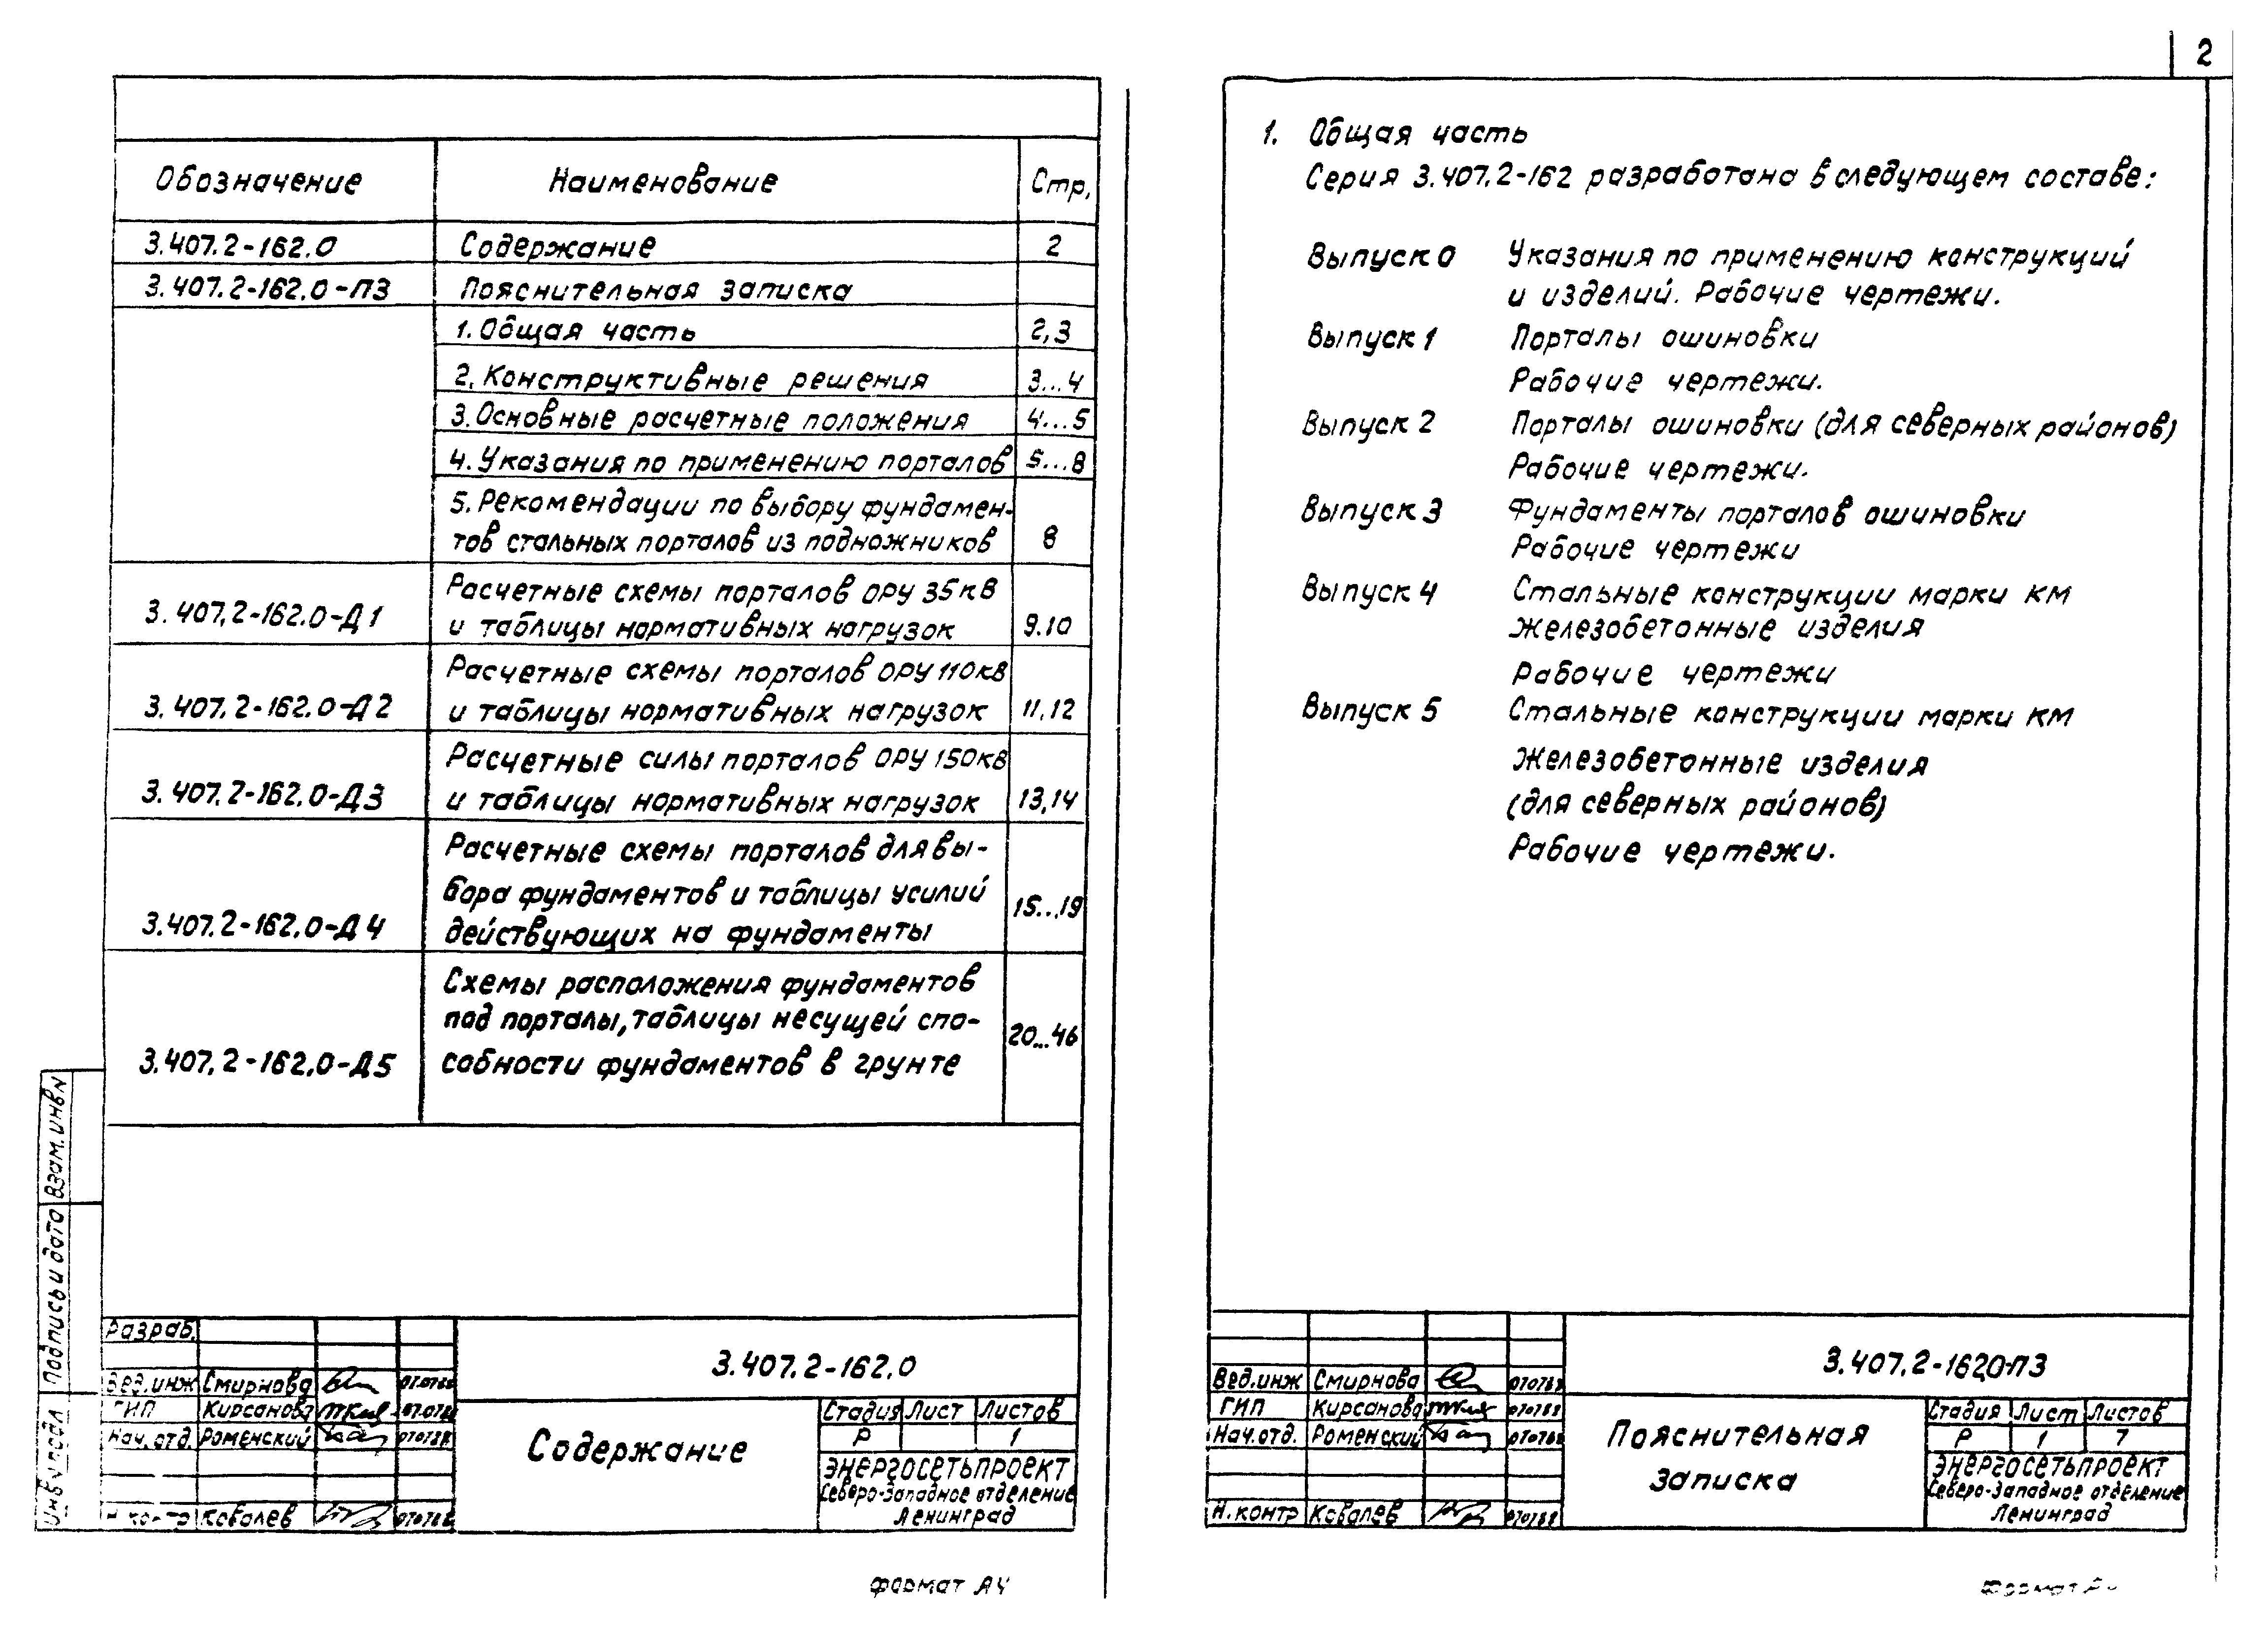 Обозначение Наименование Стр.
3.407.2-162.0 Содержание 2
3.407.2-162.0-ПЗ Пояснительная записка
1. Общая часть 2,3
2. Конструктивные решения 3...4
3. Основные расчетные положения 4...5
4. Указания по применению порталов 5...8
5. Рекомендации по выбору фундамен-
тов стальных порталов из подножников 8
Расчетные схемы порталов ОРУ 35кВ
3.407.2-162.0-Д1 и таблицы нормативных нагрузок 9.10
Расчетные схемы порталов ОРУ 110кВ
3.407.2-162.0-Д2 и таблицы нормативных нагрузок 11.12
Расчетные силы порталов ОРУ 150кВ
3.407.2-162.0-Д3 и таблицы нормативных нагрузок 13,14
Расчетные схемы порталов для вы-
бора фундаментов и таблицы усилий
3.407.2-162.0-Д4 действующих на фундаменты 15...19
Схемы расположения фундаментов
под порталы, таблицы несущей спо-
3.407.2-162.0-Д5 собности фундаментов в грунте 20...46
Взам.инв.N
Подпись и дата
Инв.N подл
Разраб.
3.407.2-162.0
Вед.инж Смирнова
ГИП Кирсанова
Нач.отд. Роменский
Содержание
Стадия Лист Листов
Р 1
ЭНЕРГОСЕТЬПРОЕКТ
Северо-Западное отделение
Ленинград
Н.контр Ковалев
Формат А4
2
1. Общая часть
Серия 3.407.2-162 разработана в следующем составе:
Выпуск 0 Указания по применению конструкций
и изделий. Рабочие чертежи.
Выпуск 1 Порталы ошиновки
Рабочие чертежи.
Выпуск 2 Порталы ошиновки (для северных районов)
Рабочие чертежи.
Выпуск 3 Фундаменты порталов ошиновки
Рабочие чертежи
Выпуск 4 Стальные конструкции марки КМ
Железобетонные изделия
Рабочие чертежи
Выпуск 5 Стальные конструкции марки КМ
Железобетонные изделия
(для северных районов)
Рабочие чертежи.
3.407.2-162.0-ПЗ
Вед.инж Смирнова
ГИП Кирсанова
Нач.отд. Роменский
Пояснительная
записка
Стадия Лист Листов
Р 1 7
ЭНЕРГОСЕТЬПРОЕКТ
Северо-Западное отделение
Ленинград
Н.контр Ковалев
Формат